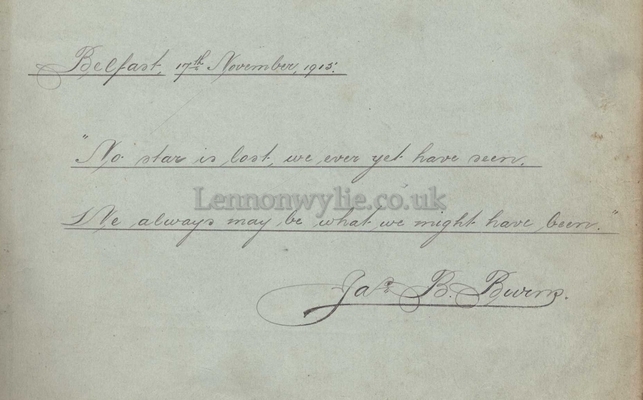 Belfast, 17th November, 1915.
"No star is lost, we ever yet have seen.
Lennonwylie.co.uk
We always may be what we might have been."
Jas. B. Burns.